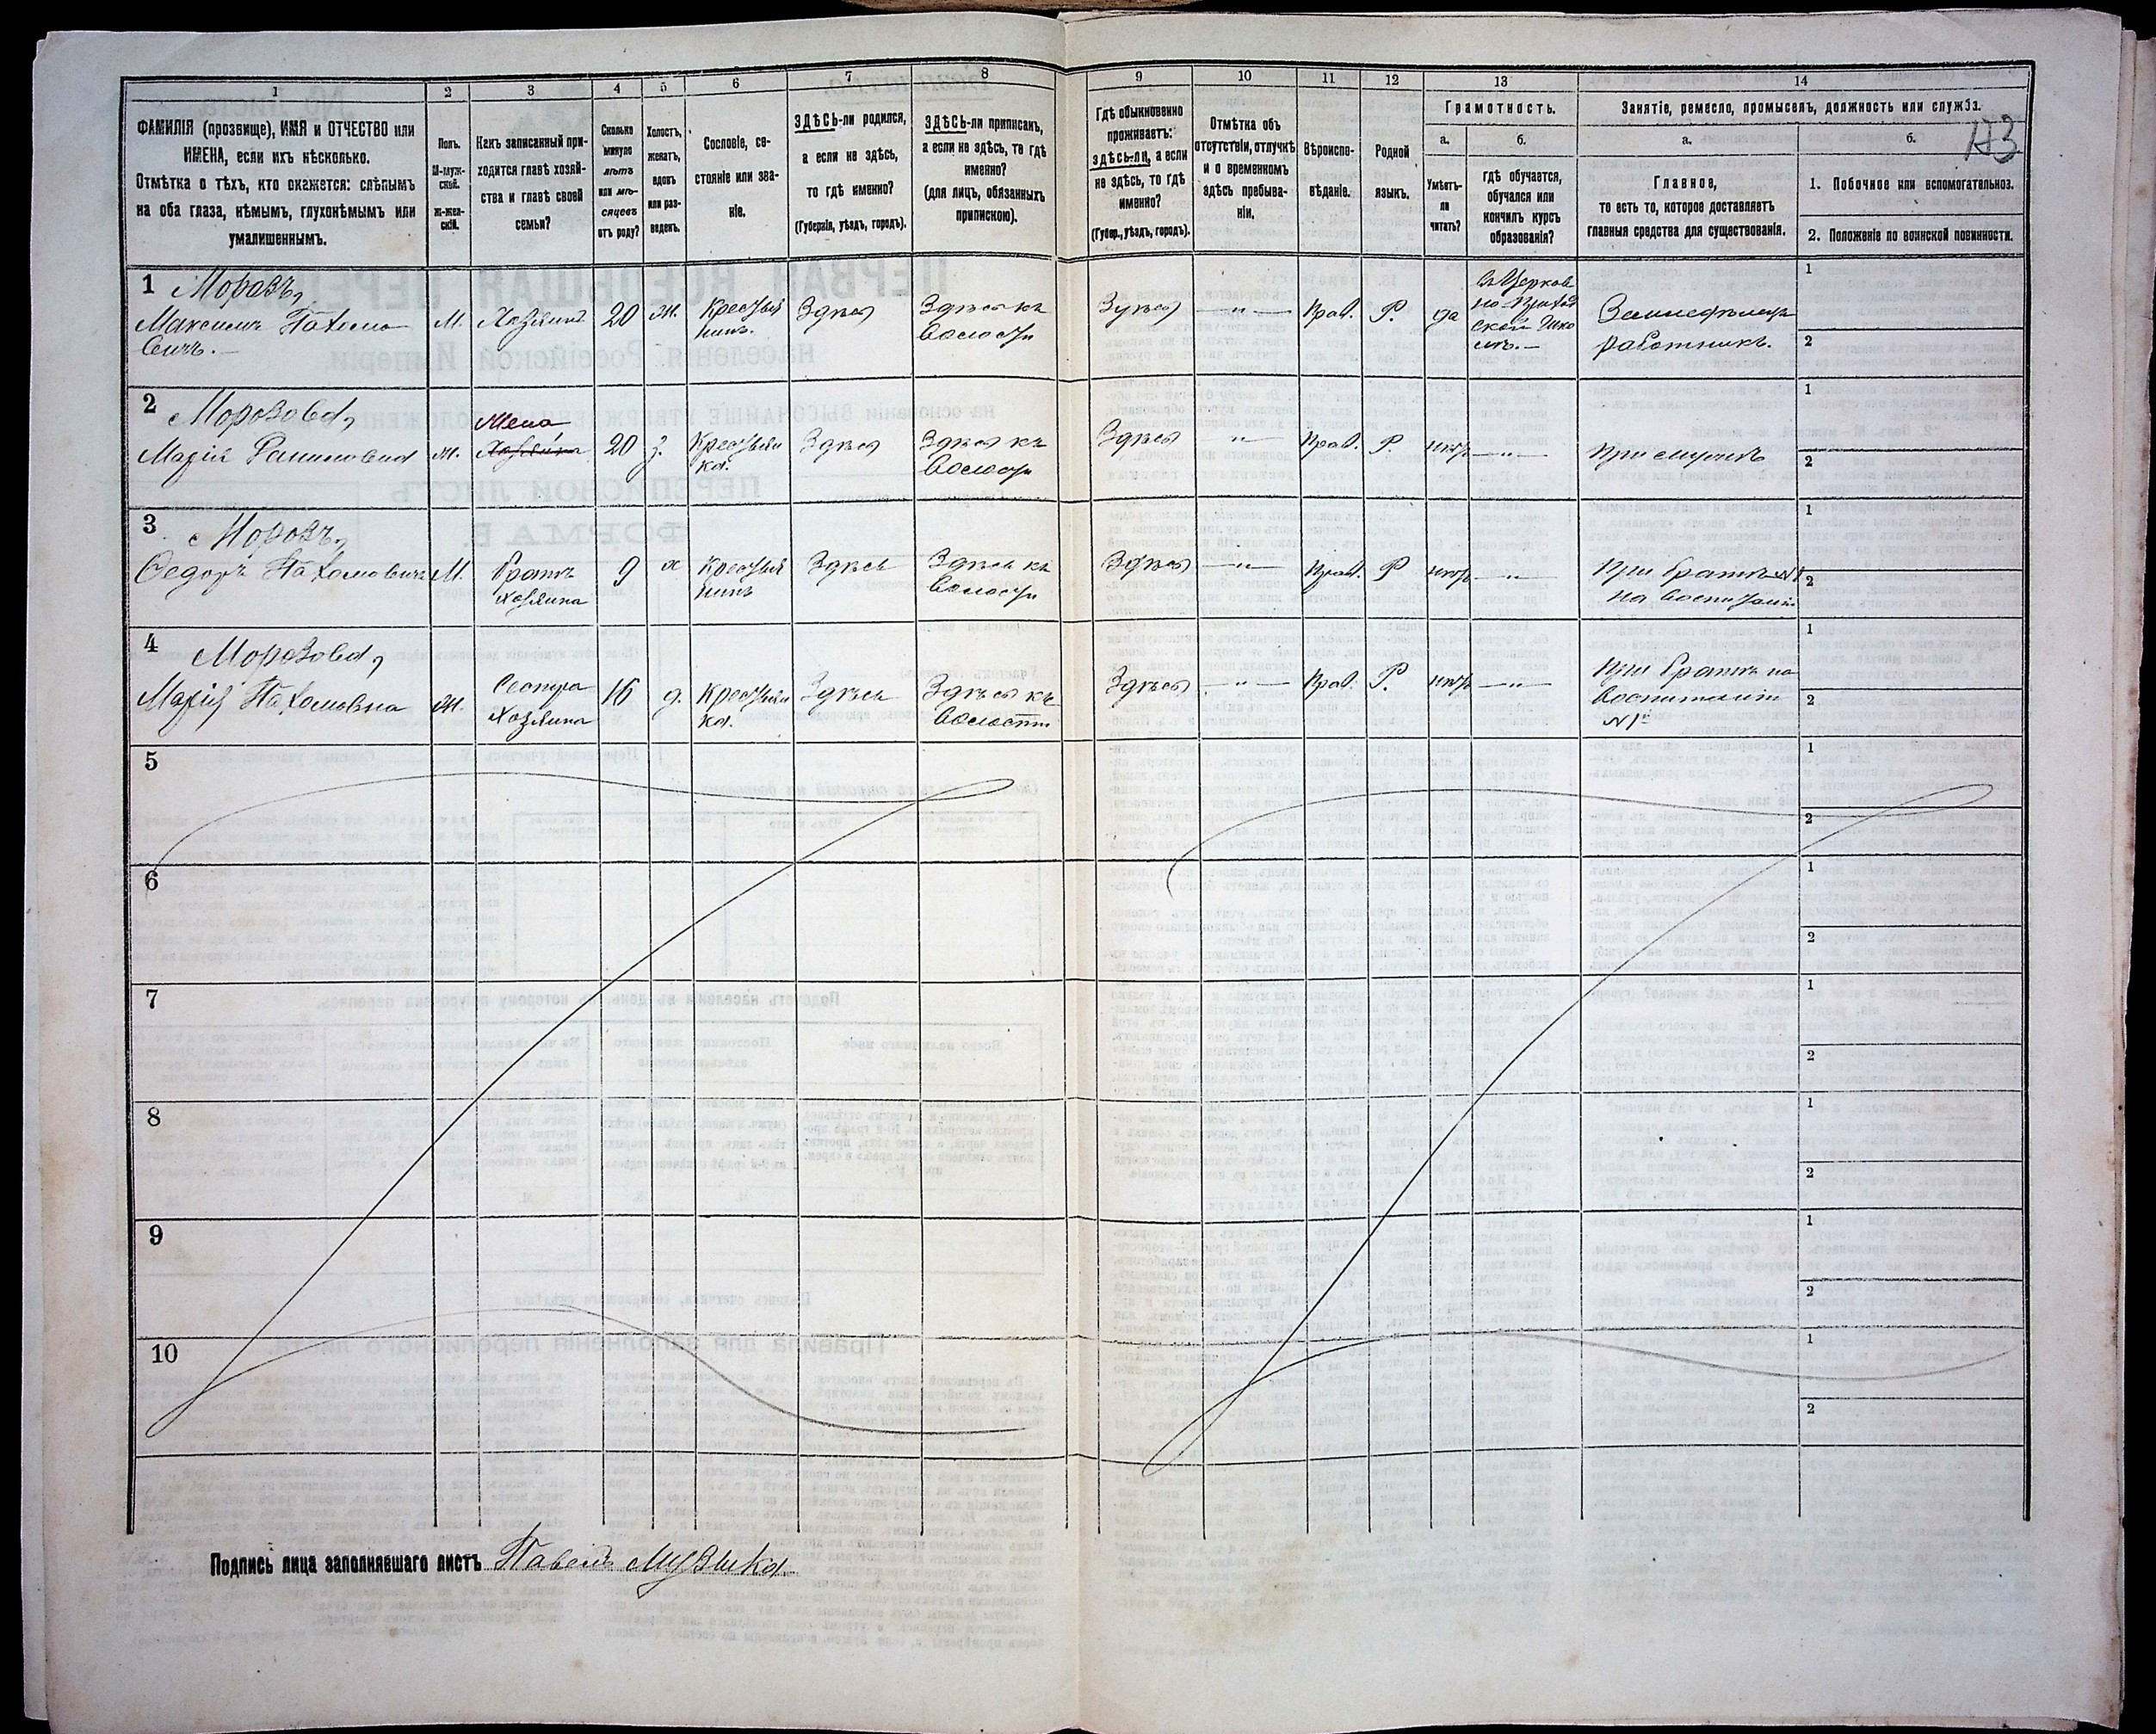 1
2
3
4
5
6
7
8
9
10
11
12
13
14
ФАМИЛІЯ (прозвище), ИМЯ и ОТЧЕСТВО или
ИМЕНА, если ихъ нѣсколько.
Отмѣтка о тѣхъ, кто окажется: слѣпымъ
на оба глаза, нѣмымъ, глухонѣмымъ или
умалишеннымъ.
Полъ.
М-муж-
ской.
Ж-жен-
скій.
Какъ записанный при-
ходится главѣ хозяй-
ства и главѣ своей
семьи?
Сколько
минуло
лѣтъ
или мѣ-
сяцевъ
отъ роду?
Холостъ,
женатъ,
вдовъ
или раз-
веденъ.
Сословіе, со-
стояніе или зва-
ніе.
ЗДѢСЬ-ли родился,
а если не здѣсь,
то гдѣ именно?
(Губернія, уѣздъ, городъ).
ЗДѢСЬ-ли приписанъ,
а если не здѣсь, то гдѣ
именно?
(для лицъ, обязанныхъ
припискою).
Гдѣ обыкновенно
проживаетъ:
здѣсь-ли, а если
не здѣсь, то гдѣ
именно?
(Губер., уѣздъ, городъ).
Отмѣтка объ
отсутствіи, отлучкѣ
и о временномъ
здѣсь пребыва-
ніи.
Вѣроиспо-
вѣданіе.
Родной
языкъ.
Грамотность.
а.
Умѣетъ-
ли
читать?
б.
гдѣ обучается,
обучался или
кончилъ курсъ
образованія?
Занятіе, ремесло, промыселъ, должность или служба.
а.
Главное,
то есть то, которое доставляетъ
главныя средства для существованія.
б.
1. Побочное или вспомогательное.
2. Положеніе по воинской повинности.
1 Морозъ,
Максимъ Пахомо
вичъ.—
М.
Хозяинъ
20
ж.
Крестья
нинъ.
Здѣсь
Здѣсь къ
волости
Здѣсь
— „ —
Прав.
Р.
да
въ Церков
но-Приход
ской Шко
лѣ.—
Земледѣлецъ
работникъ.
1
2
2 Морозова,
Марія
ж.
Жена
Хозяина
20
з.
Крестьян
ка.
Здѣсь
Здѣсь къ
волости
Здѣсь
— „ —
Прав.
Р.
нѣтъ
— „ —
При мужѣ
1
2
3 Морозъ,
Ѳедоръ Пахомовичъ
М.
Братъ
Хозяина
9
х
Крестья
нинъ
Здѣсь
Здѣсь къ
волости
Здѣсь
— „ —
Прав.
Р
нѣтъ
— „ —
При братѣ №1
на воспитаніи
1
2
4 Морозова,
Марія Пахомовна
ж.
Сестра
Хозяина
16
д.
Крестьян
ка.
Здѣсь
Здѣсь къ
волости
Здѣсь
— „ —
Прав.
Р.
нѣтъ
— „ —
При братѣ на
воспитаніи
№1й
1
2
5
1
2
6
1
2
7
1
2
8
1
2
9
1
2
10
1
2
Подпись лица заполнявшаго листъ Павелъ Музыка